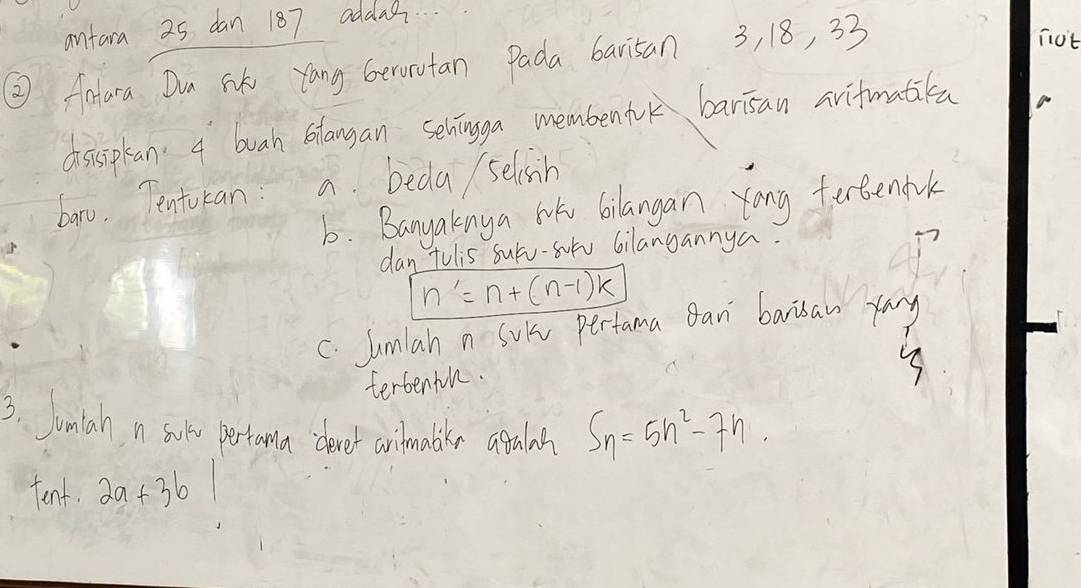 antara 25 dan 187 adalah....
② Antara Dua suku yang berurutan pada barisan 3, 18, 33
disisipkan 4 buah bilangan sehingga membentuk barisan aritmatika
baru. Tentukan: a. beda/selisih
b. Banyaknya suku bilangan yang terbentuk
dan tulis suku-suku bilangannya.
n' = n + (n-1)k
c. Jumlah n suku pertama dari barisan yang
terbentuk.
3. Jumlah n suku pertama deret aritmatika adalah Sn = 5n² - 7n.
tent. 2a + 3b !